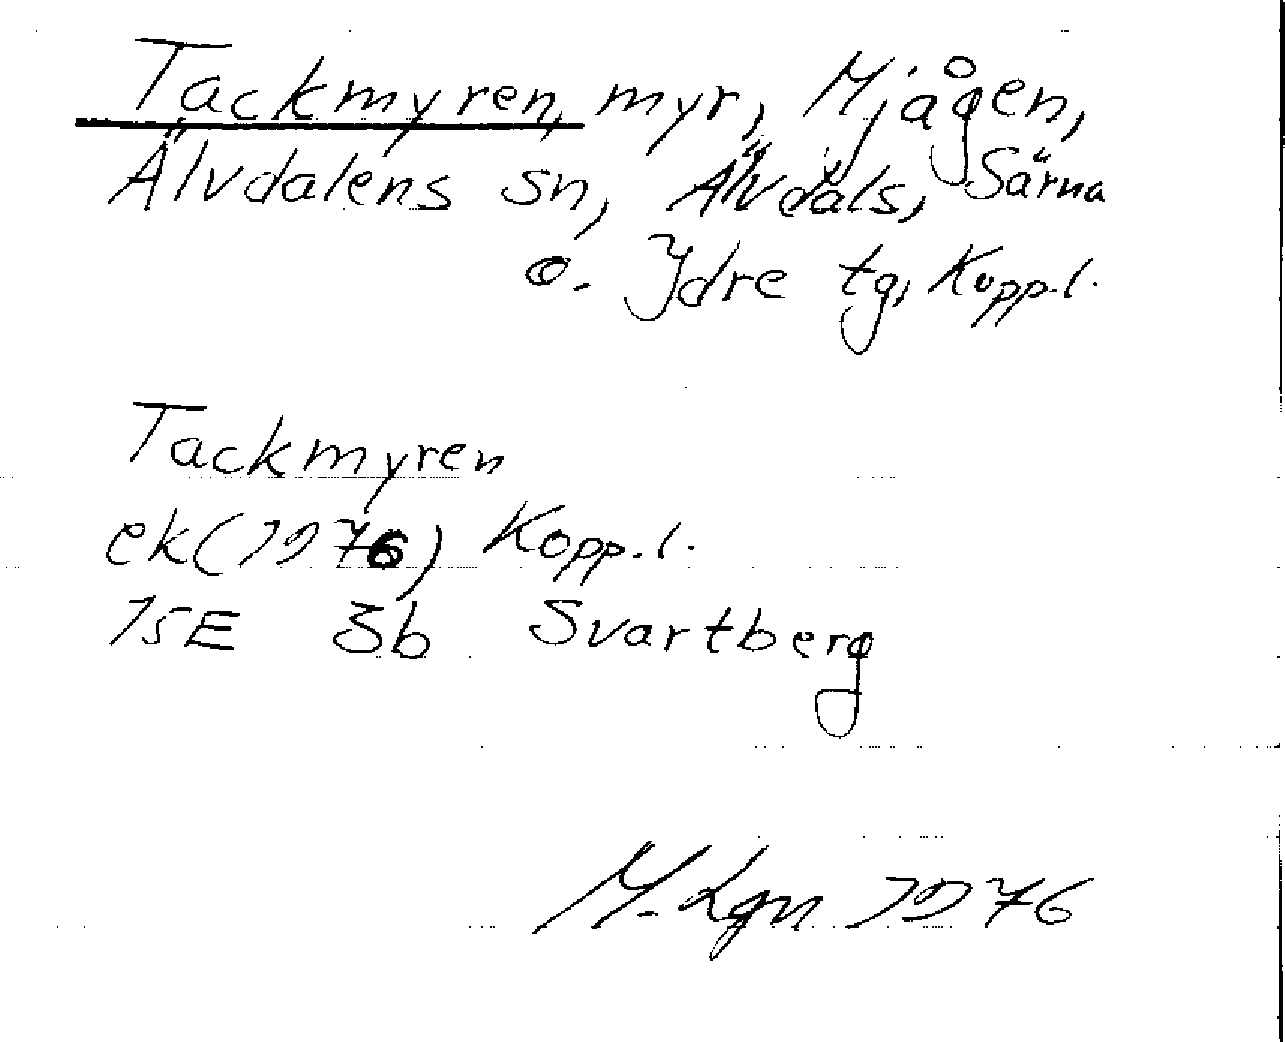 Tackmyren, myr, Mjågen,
Älvdalens sn, Älvdals, Särna
o. Idre tg, Kopp.l.
Tackmyren
ek (1976) Kopp.l.
15E 3b Svartberg
M. Lgn 1976